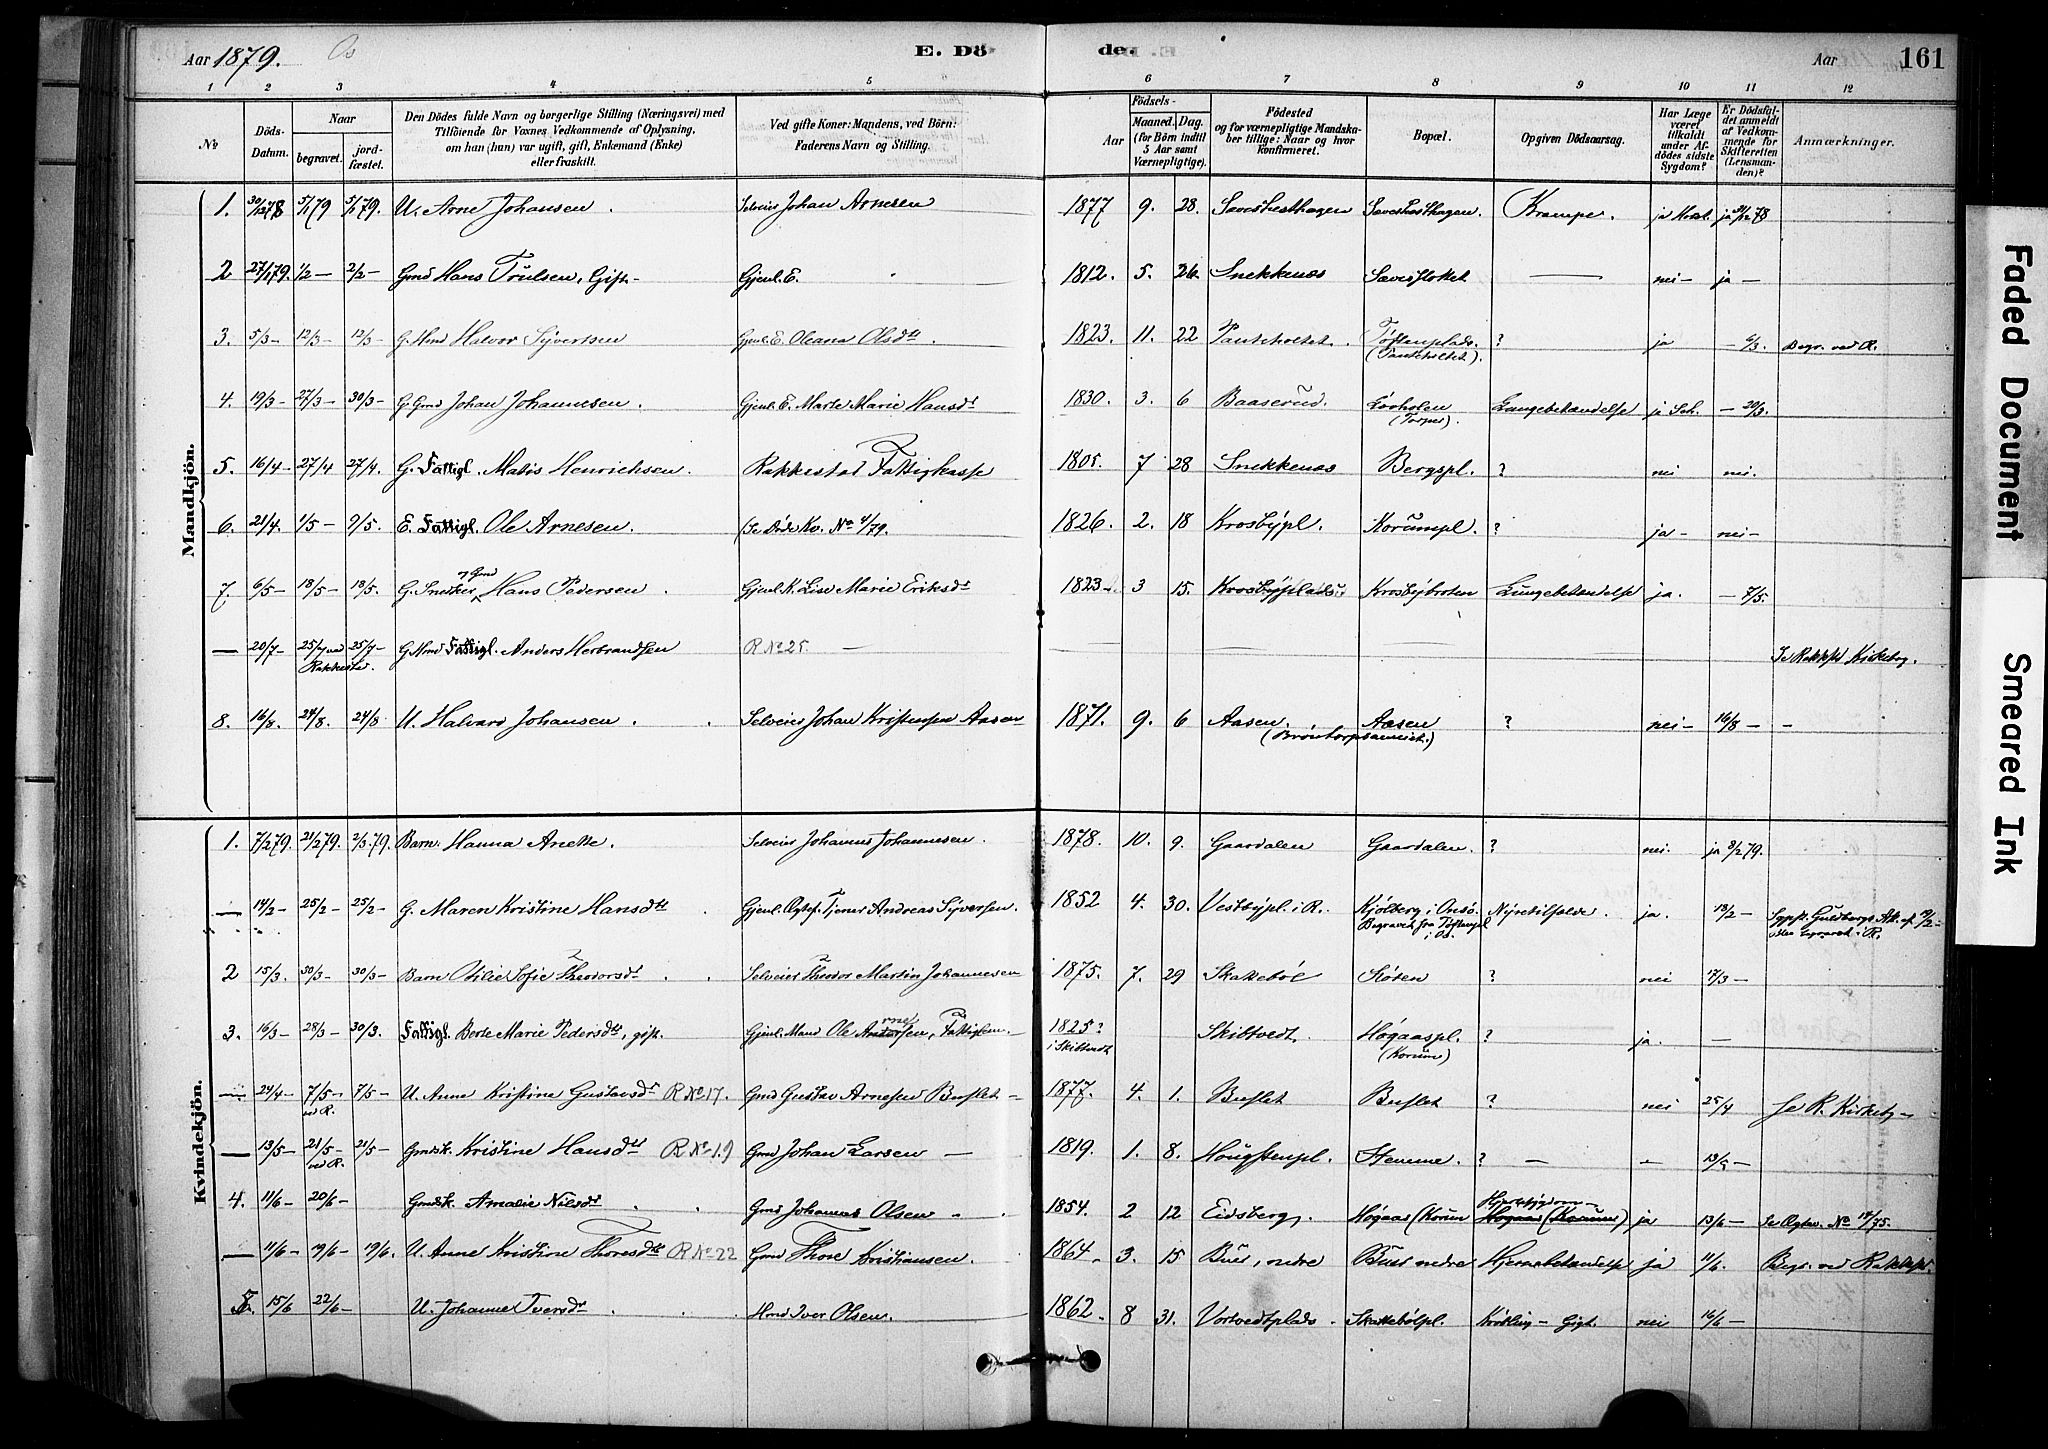 Aar 1879. Os E. Döde. Aar 161
1 2 3 4 5 6 7 8 9 10 11 12
No Döds-Datum. Naar begravet. jordfæstet. Den Dödes fulde Navn og borgerlige Stilling (Næringsvei) med Tilföiende for Voxnes Vedkommende af Oplysning, om han (hun) var ugift, gift, Enkemand (Enke) eller fraskilt. Ved gifte Koner: Mandens, ved Börn: Faderens Navn og Stilling. Aar Födsels- Maaned. Dag. (for Börn indtil 5 Aar samt Værnepligtige). Födested og for værnepligtige Mandskaber tillige: Naar og hvor konfirmeret. Bopæl. Opgiven Dödsaarsag. Har Læge været tilkaldt under Afdödes sidste Sygdom? Er Dödsfaldet anmeldt af Vedkommende for Skifteretten (Lensmanden)? Anmærkninger.
Mandkjön.
1. 30/12 78 5/1 79 5/1 79. U. Arne Johansen. Selveier Johan Arnesen 1877 9. 28. Krampe. ja 31/12 78
2 27/1 79. 1/2 – 2/2 – Gmd Hans Trulsen, Gift – Gjenl. E. 1812. 5. 26. Snekkenæs nei – ja –
3. 5/3 – 12/3 – 12/3 – G. Hmd Halvor Syvertsen Gjenl. E. Oleana Olsdtr. 1823. 11. 22 Tanteholtet. Töftenplads. (Tanteholtet). ? ja – 6/3. Begr. ved R.
4. 19/3 – 27/3 – 30/3 – G. Gmd Johan Johannesen. Gjenl. E. Marte Marie Hansdtr 1830. 3. 6 Baaserud. Lövholen (Torper). Lungebetændelse ja Sch. – 20/3.
5. 16/4 – 27/4 27/4. G. Fattigl. Mathis Henrichsen. Rakkestad Fattigkasse 1805. 7 28 Snekkenæs Bergspl. ? nei nei.
6. 21/4. 1/5 – 9/5. E. Fattigl. Ole Arnesen. (Se Döde Kv. No 4/79. 1826. 2. 18 Krosbypl. Korumpl. ? ja – nei –
7. 6/5 – 18/5 – 18/5. G. Snedker & Gmd Hans Pedersen. Gjenl. K. Lise Marie Eriksdtr 1823 3 15. Krosbyplads. Krosbybroten Lungebetændelse ja. – 7/5.
— 20/7 – 25/7 ved Rakkestad. 25/7 – G. Hmd Fattigl. Anders Herbrandsen R No 25. — Se Rakkst Kirkebog.
8. 16/8. 24/8. 24/8 U. Halvard Johansen. Selveier Johan Kristensen Aasen 1871. 9. 6 Aasen. Aasen ? nei – 16/8 – –
Kvindekjön.
1. 7/2 79. 21/2 79. 2/3 79. Barn. Hanna Anette. Selveier Johannes Johannesen. 1878. 10. 9. Gaardalen Gaardalen. ? nei. ja 8/2 79.
— 14/2 – 25/2 – 25/2 – G. Maren Kristine Hansdtr Gjenl. Ægtef. Tjener Andreas Syversen. 1852 4. 30. Vestbypl. i R. Kjölberg i Onsö. Begravet fra Töftenpl i Os. Nyretilfælde. ja. 18/2 –
2 15/3. 30/3 – 30/3 – Barn Otilie Sofie Theodorsdtr Selveier Theodor Martin Johannesen 1875. 7. 29 Skattebøl Sloren ? nei 17/3 –
3. 16/3 – 28/3 – 30/3. Fattigl. Berte Marie Pedersdtr, gift. Gjenl. Mand Ole Arnesen, Fattiglem. 1825? i Skibtvedt Skibtvedt. Høgaaspl. (Korum) ? ja. —
— 24/4 – 7/5 – ved R. 7/5 – U. Anne Kristine Gustavsdtr R No 17. Gmd Gustav Arnesen Buslet – 1877. 4. 1. Buslet Buslet ? nei 25/4 Se R. Kirkebg –
— 13/5 – 21/5 – ved R. 21/5 – Gmdsk. Kristine Hansdtr R No 19 Gmd Johan Larsen — 1819. 1. 8. Hougstenpl. Stemme. ? — –
4. 11/6 – 20/6 – Gmdsk. Amalie Nilsdtr Gmd Johannes Olsen – 1854. 2 12 Eidsberg. Høgaas (Korum Hjertesygdom – Høgaas (Korum) ja 13/6 –
— 11/6 – 19/6 – 19/6. U. Anne Kristine Thoresdtr R No 22 Gmd Thore Kristiansen. 1864. 3. 15 Buer, nedre Buer nedre Hjernebetændelse ja 11/6. Begr. ved Rakkest.
5. 15/6 22/6 – U. Johanne Iversdtr Hmd Iver Olsen. 1862. 8 31. Vortvedtplads. Skattebölpl. Kröbling – Gigt. nei 16/6 –
Faded Document
Smeared Ink